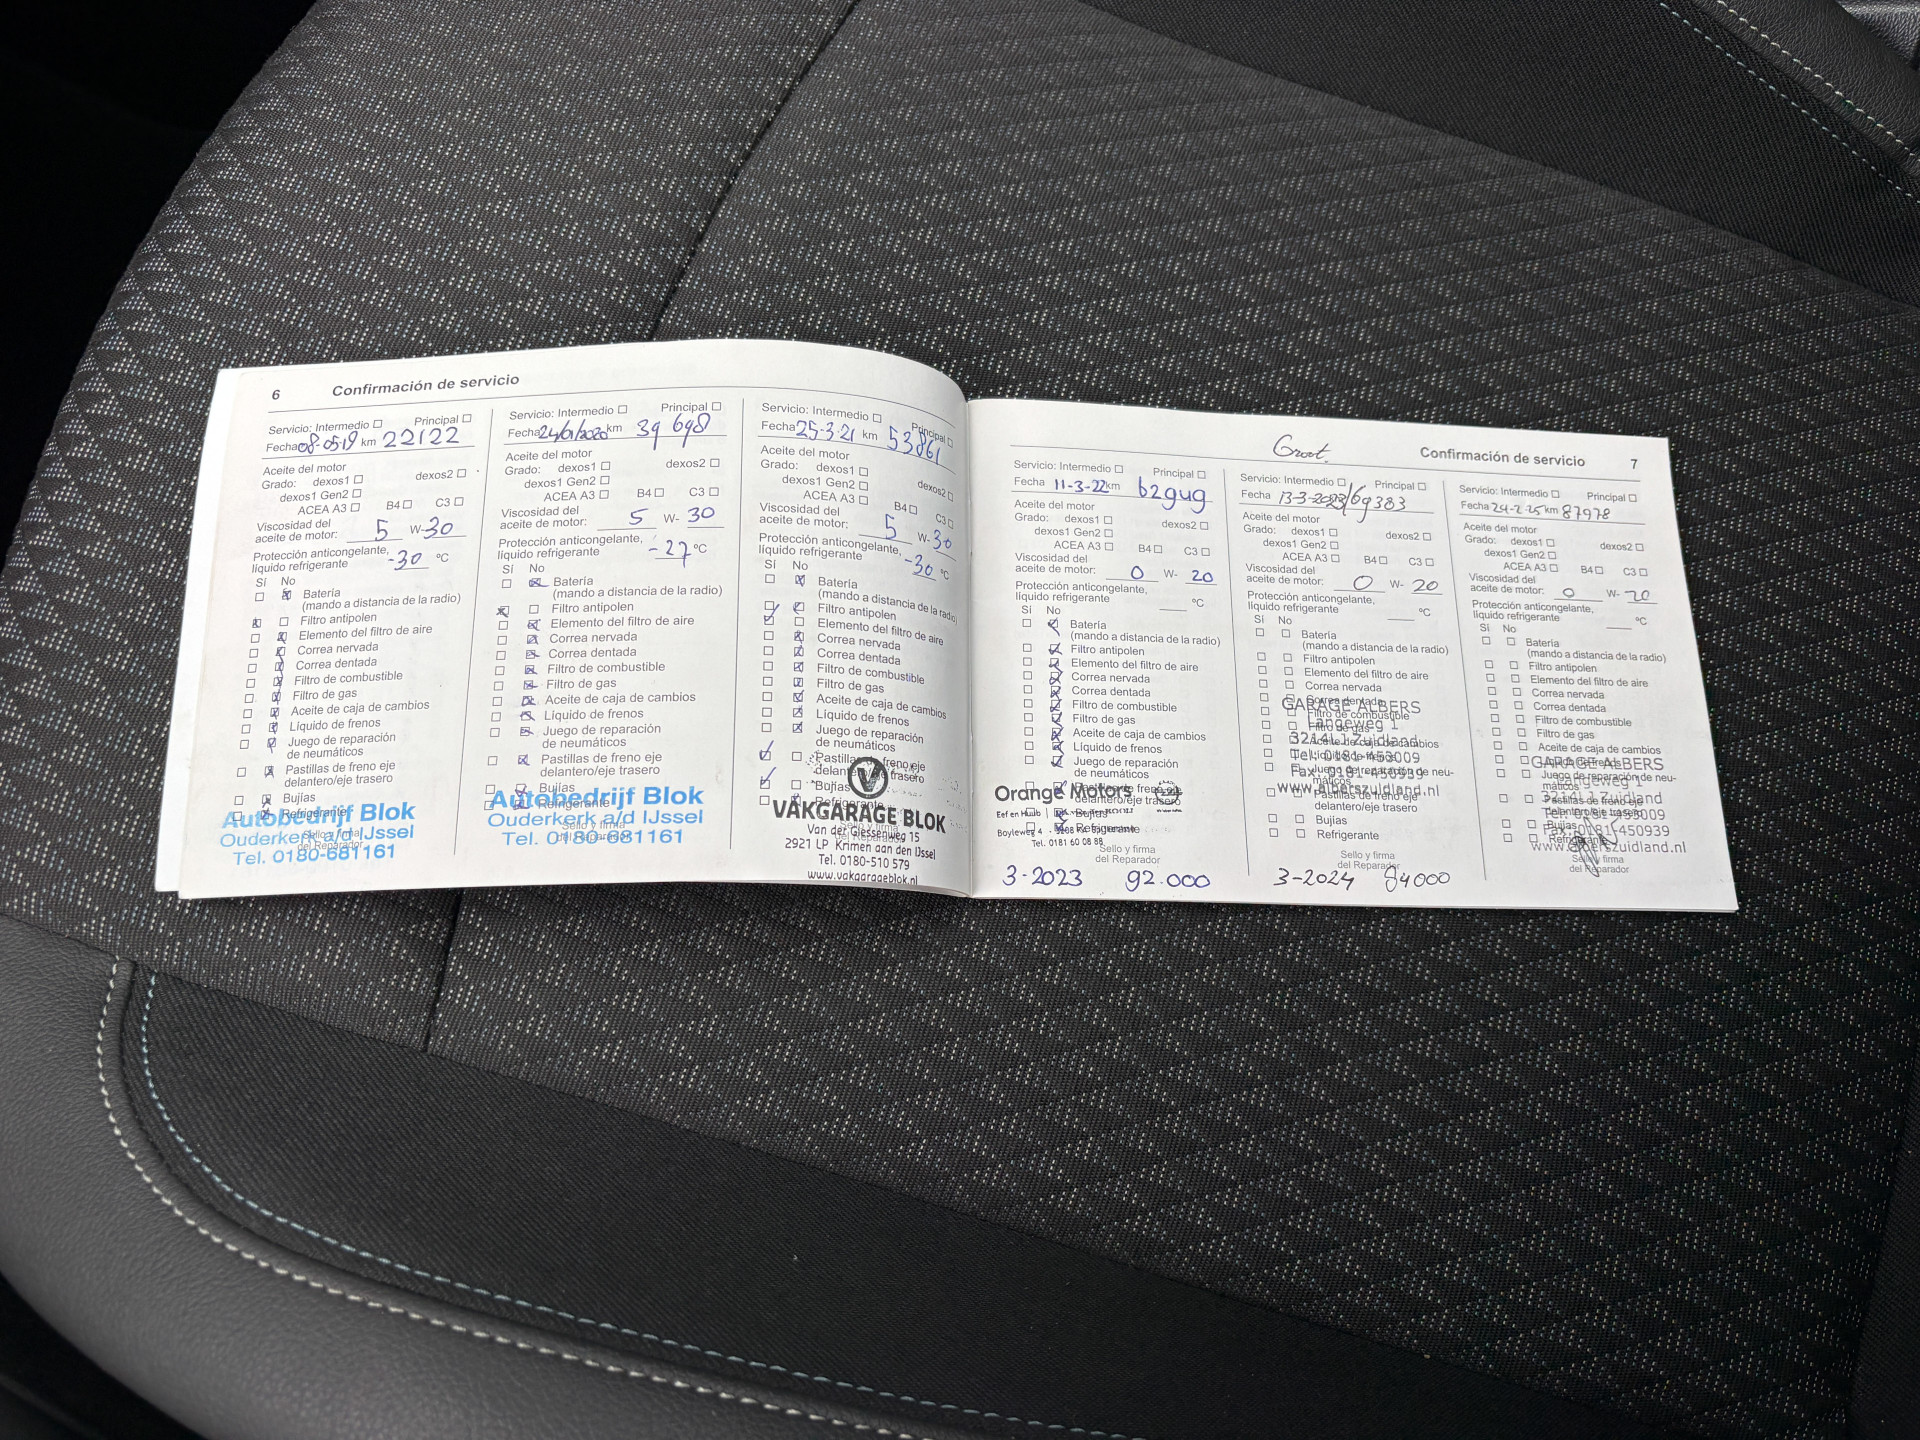 6 Confirmación de servicio
Servicio: Intermedio Principal
Fecha 08-05-19 km 22122
Aceite del motor
Grado: dexos1 dexos2
dexos1 Gen2
ACEA A3 B4 C3
Viscosidad del
aceite de motor: 5 W-30
Protección anticongelante,
líquido refrigerante -30 °C
Sí No
Batería
(mando a distancia de la radio)
Filtro antipolen
Elemento del filtro de aire
Correa nervada
Correa dentada
Filtro de combustible
Filtro de gas
Aceite de caja de cambios
Líquido de frenos
Juego de reparación
de neumáticos
Pastillas de freno eje
delantero/eje trasero
Bujías
Refrigerante
Autobedrijf Blok
Ouderkerk a/d IJssel
Tel. 0180-681161
Sello y firma
del Reparador
Servicio: Intermedio Principal
Fecha 24/01/2020 km 39 698
Aceite del motor
Grado: dexos1 dexos2
dexos1 Gen2
ACEA A3 B4 C3
Viscosidad del
aceite de motor: 5 W-30
Protección anticongelante,
líquido refrigerante -27 °C
Sí No
Batería
(mando a distancia de la radio)
Filtro antipolen
Elemento del filtro de aire
Correa nervada
Correa dentada
Filtro de combustible
Filtro de gas
Aceite de caja de cambios
Líquido de frenos
Juego de reparación
de neumáticos
Pastillas de freno eje
delantero/eje trasero
Bujías
Refrigerante
Autobedrijf Blok
Ouderkerk a/d IJssel
Tel. 0180-681161
Sello y firma
del Reparador
Servicio: Intermedio Principal
Fecha 25-3-21 km 53861
Aceite del motor
Grado: dexos1 dexos2
dexos1 Gen2
ACEA A3 B4 C3
Viscosidad del
aceite de motor: 5 W-30
Protección anticongelante,
líquido refrigerante -30 °C
Sí No
Batería
(mando a distancia de la radio)
Filtro antipolen
Elemento del filtro de aire
Correa nervada
Correa dentada
Filtro de combustible
Filtro de gas
Aceite de caja de cambios
Líquido de frenos
Juego de reparación
de neumáticos
Pastillas de freno eje
delantero/eje trasero
Bujías
Refrigerante
VAKGARAGE BLOK
Sello y firma
del Reparador
Van der Giessenweg 15
2921 LP Krimpen aan den IJssel
Tel. 0180-510 579
www.vakgarageblok.nl
Groot.
Confirmación de servicio 7
Servicio: Intermedio Principal
Fecha 11-3-22 km 62949
Aceite del motor
Grado: dexos1 dexos2
dexos1 Gen2
ACEA A3 B4 C3
Viscosidad del
aceite de motor: 0 W-20
Protección anticongelante,
líquido refrigerante °C
Sí No
Batería
(mando a distancia de la radio)
Filtro antipolen
Elemento del filtro de aire
Correa nervada
Correa dentada
Filtro de combustible
Filtro de gas
Aceite de caja de cambios
Líquido de frenos
Juego de reparación
de neumáticos
Pastillas de freno eje
delantero/eje trasero
Bujías
Refrigerante
Orange Motors
Boyleweg 4
Tel. 0181 60 08 88
Sello y firma
del Reparador
3-2023 92.000
Servicio: Intermedio Principal
Fecha 13-3-2023/69383
Aceite del motor
Grado: dexos1 dexos2
dexos1 Gen2
ACEA A3 B4 C3
Viscosidad del
aceite de motor: 0 W-20
Protección anticongelante,
líquido refrigerante °C
Sí No
Batería
(mando a distancia de la radio)
Filtro antipolen
Elemento del filtro de aire
Correa nervada
Correa dentada
Filtro de combustible
Filtro de gas
Aceite de caja de cambios
Líquido de frenos
Juego de reparación de neu-
máticos
Pastillas de freno eje
delantero/eje trasero
Bujías
Refrigerante
GARAGE ALBERS
Langeweg 1
3214LJ Zuidland
Tel. 0181-453009
Fax. 0181-450939
www.alberszuidland.nl
Sello y firma
del Reparador
3-2024 84000
Servicio: Intermedio Principal
Fecha 24-2-25 km 87978
Aceite del motor
Grado: dexos1 dexos2
dexos1 Gen2
ACEA A3 B4 C3
Viscosidad del
aceite de motor: 0 W-20
Protección anticongelante,
líquido refrigerante °C
Sí No
Batería
(mando a distancia de la radio)
Filtro antipolen
Elemento del filtro de aire
Correa nervada
Correa dentada
Filtro de combustible
Filtro de gas
Aceite de caja de cambios
Líquido de frenos
Juego de reparación de neu-
máticos
Pastillas de freno eje
delantero/eje trasero
Bujías
Refrigerante
GARAGE ALBERS
Langeweg 1
3214LJ Zuidland
Tel. 0181-453009
Fax. 0181-450939
www.alberszuidland.nl
Sello y firma
del Reparador